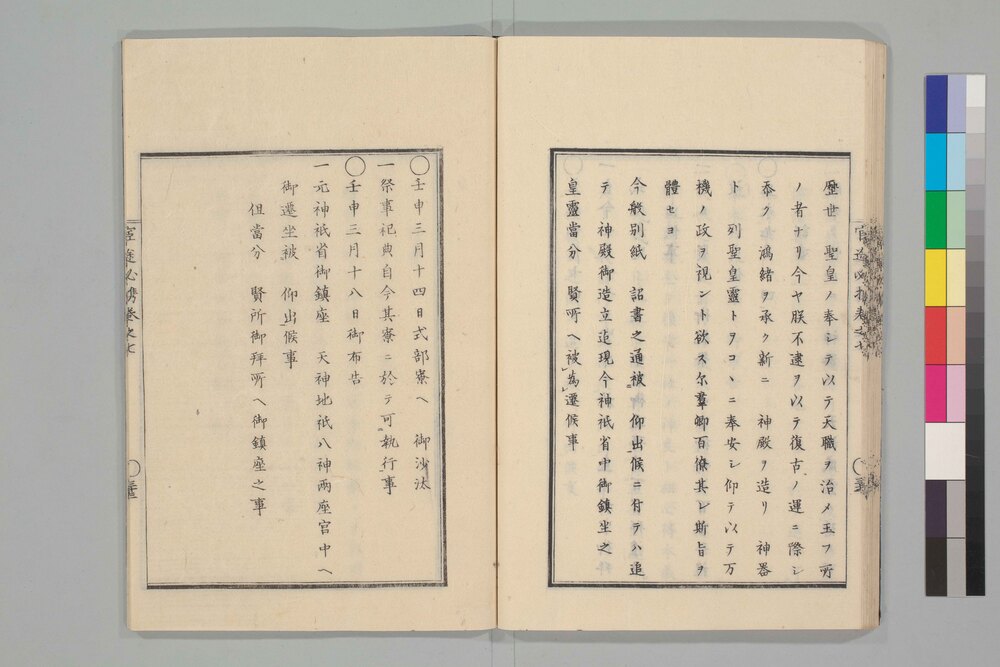 歷世　聖皇ノ奉シテ以テ天職ヲ治メ玉フ所
ノ者ナリ今ヤ朕不逮ヲ以テ復古ノ運ニ際シ
忝ク　鴻緒ヲ承ク新ニ　神殿ヲ造リ　神器
ト　列聖皇靈トヲコヽニ奉安シ仰テ以テ万
機ノ政ヲ視ント欲ス尓羣卿百僚其レ斯旨ヲ
體セヨ
今般別紙　詔書之通被　仰出候ニ付テハ追
テ今神殿御造立迄現今神祇省中御鎮坐之
皇靈當分　賢所ヘ被為レ遷候事
〇壬申三月十四日式部寮ヘ　御沙汰
一祭事祀典自今其寮ニ於テ可執行事
〇壬申三月十八日御布告
一元神祇省御鎮座　天神地祇八神両座宮中ヘ
御遷坐被　仰出候事
但當分　賢所御拜所ヘ御鎮座之事